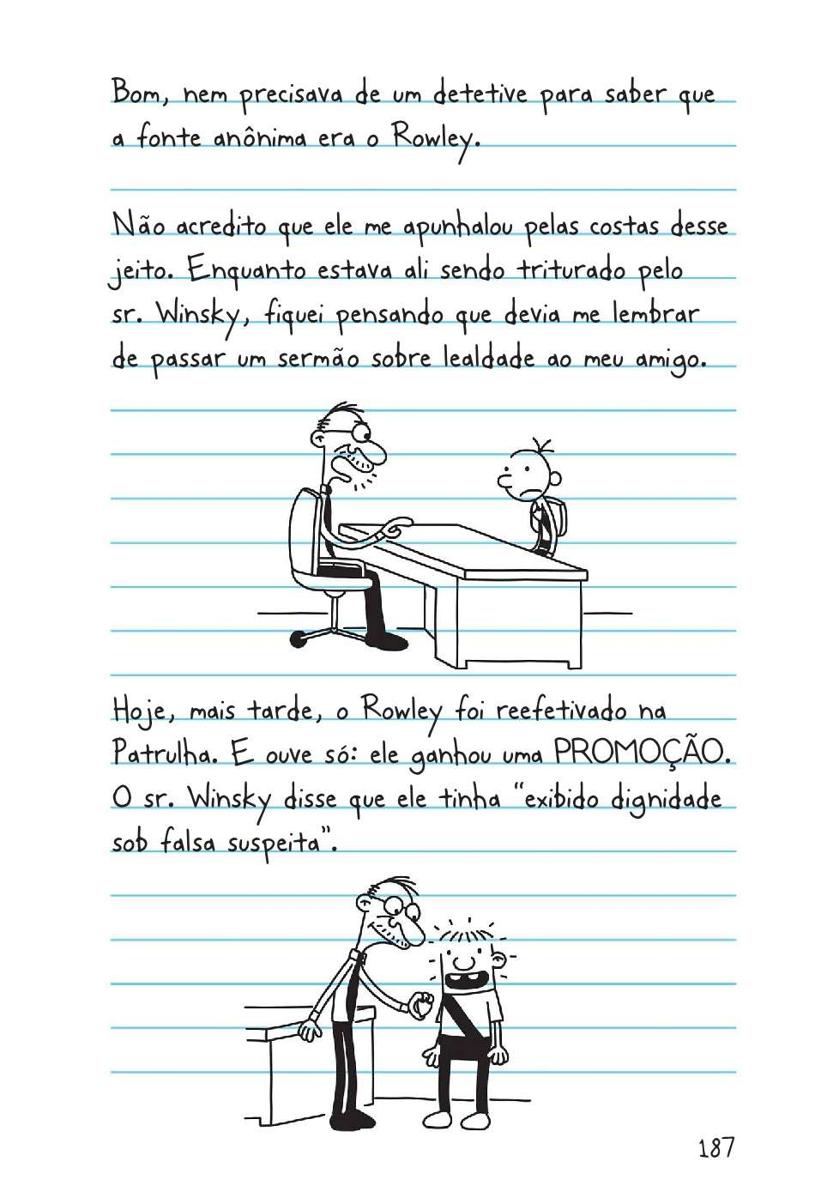 Bom, nem precisava de um detetive para saber que
a fonte anônima era o Rowley.
Não acredito que ele me apunhalou pelas costas desse
jeito. Enquanto estava ali sendo triturado pelo
sr. Winsky, fiquei pensando que devia me lembrar
de passar um sermão sobre lealdade ao meu amigo.
Hoje, mais tarde, o Rowley foi reefetivado na
Patrulha. E ouve só: ele ganhou uma PROMOÇÃO.
O sr. Winsky disse que ele tinha “exibido dignidade
sob falsa suspeita”.
187